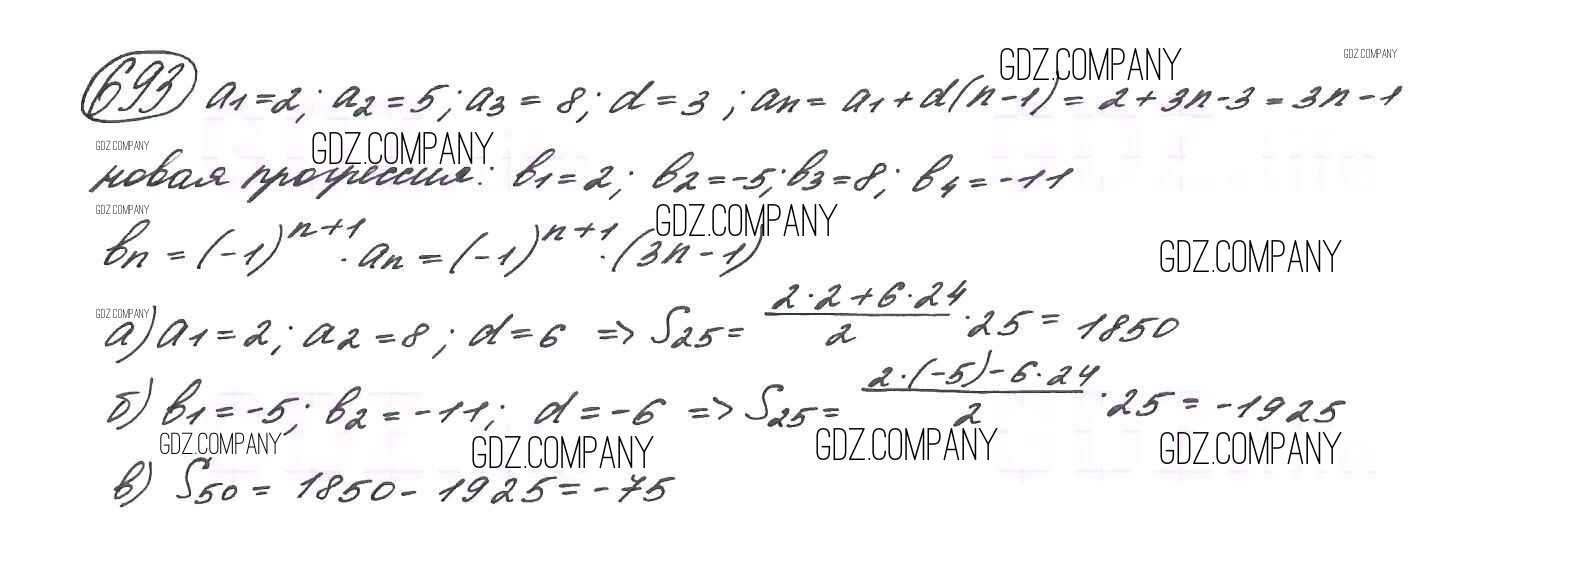 GDZ.COMPANY GDZ.COMPANY
693 a₁=2; a₂=5; a₃=8; d=3; aₙ=a₁+d(n-1)=2+3n-3=3n-1
GDZ.COMPANY GDZ.COMPANY
новая прогрессия: в₁=2; в₂=-5; в₃=8; в₄=-11
GDZ.COMPANY GDZ.COMPANY
вₙ=(-1)ⁿ⁺¹·aₙ=(-1)ⁿ⁺¹·(3n-1)
GDZ.COMPANY
GDZ.COMPANY
а) a₁=2; a₂=8; d=6 => S₂₅= (2·2+6·24)/2 ·25=1850
б) в₁=-5; в₂=-11; d=-6 => S₂₅= (2·(-5)-6·24)/2 ·25=-1925
GDZ.COMPANY GDZ.COMPANY GDZ.COMPANY GDZ.COMPANY
в) S₅₀=1850-1925=-75